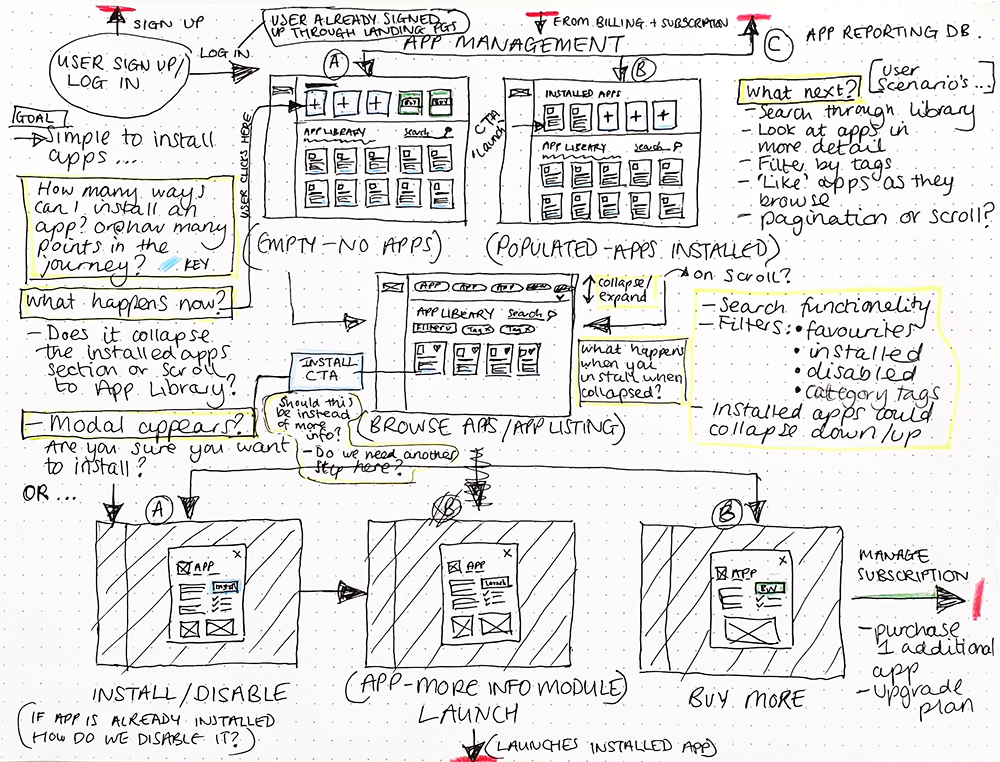 SIGN UP
USER SIGN UP/
LOG IN
LOG IN
USER ALREADY SIGNED
UP THROUGH LANDING PGS
APP MANAGEMENT
FROM BILLING + SUBSCRIPTION
C
APP REPORTING DB.
A
B
GOAL
Simple to install
apps ...
How many ways
can I install an
app? or how many
points in the
journey?
KEY
What happens now?
- Does it collapse
the installed apps
section or scroll
to App Library?
- Modal appears?
Are you sure you want
to install?
OR ...
USER CLICKS HERE
+ + + BUY BUY
APP LIBRARY Search
(EMPTY - NO APPS)
CTA
'Launch'
INSTALLED APPS
+ + +
APP LIBRARY Search
(POPULATED - APPS INSTALLED)
What next?
User
Scenario's ...
- Search through library
- Look at apps in
more detail
- Filter by tags
- 'Like' apps as they
browse
- pagination or scroll?
on scroll?
collapse/
expand
APP APP APP
APP LIBRARY Search
Filter v Tag x Tag x
INSTALL
CTA
Should this
be instead
of more
info?
- Do we need another
step here?
(BROWSE APPS / APP LISTING)
What happens
when you
install when
collapsed?
- Search functionality
- Filters: • favourites
• installed
• disabled
• category tags
- Installed apps could
collapse down/up
A
B
B
X
APP
Install
INSTALL/DISABLE
(IF APP IS ALREADY INSTALLED
HOW DO WE DISABLE IT?)
X
APP
Launch
(APP - MORE INFO MODULE)
LAUNCH
(LAUNCHES INSTALLED APP)
X
APP
BUY
BUY MORE
MANAGE
SUBSCRIPTION
- purchase
1 additional
app
- upgrade
plan